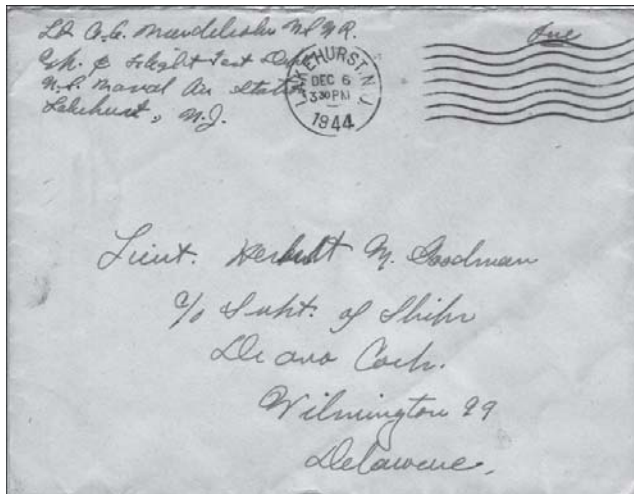 Lt A.C. Mendelsohn USNR.
& Flight Test Dept
U.S. Naval Air Station
Lakehurst, N.J.
Free
LAKEHURST, N.J.
DEC 6
3 30 PM
1944
Lieut. Herbert M. Goodman
c/o Supt. of Ships
Dravo Corp.
Wilmington 99
Delaware.